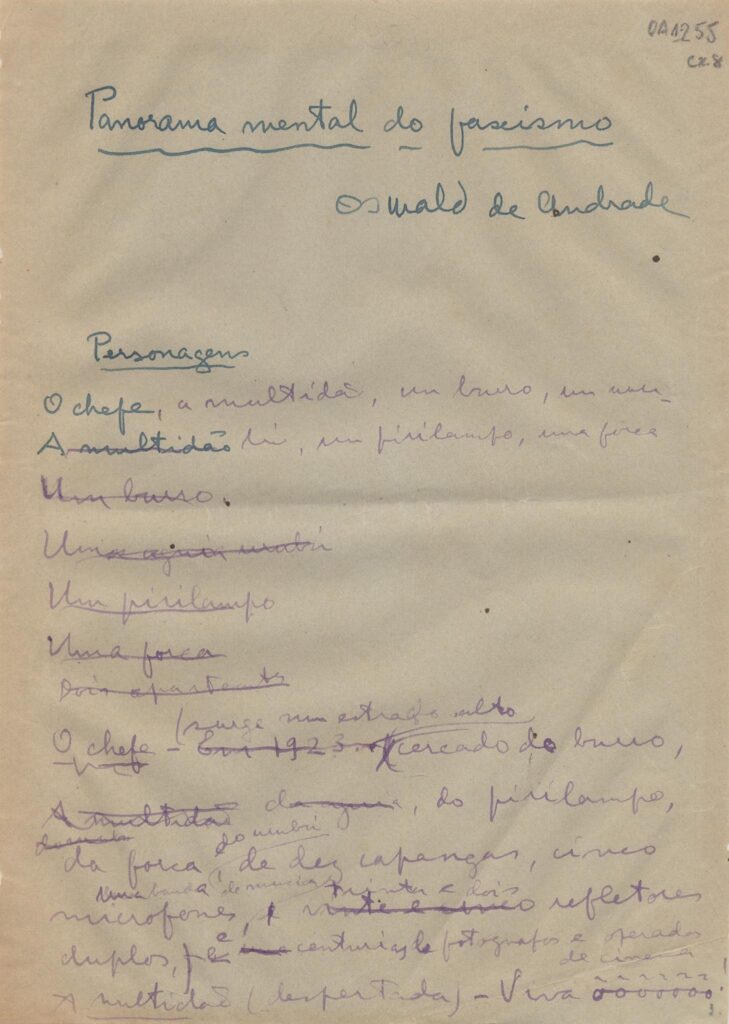 OA1255
cx.8
Panorama mental do fascismo
Oswald de Andrade
Personagens
O chefe, a multidão, um burro, um uru-
A multidão bú, um pirilampo, uma forca
Um burro.
Uma aguia urubú
Um pirilampo
Uma forca
Dois
(surge num estrado alto
O chefe – Em 1923. cercado do burro,
A multidão da aguia, do pirilampo,
do urubú
da forca, de dez capangas, cinco
uma banda de musica trinta e dois
microfones, vinte e cinco refletores
duplos, e centurias de fotografos e operados
de cinema
A multidão (despertada) – Viva ooooooo!